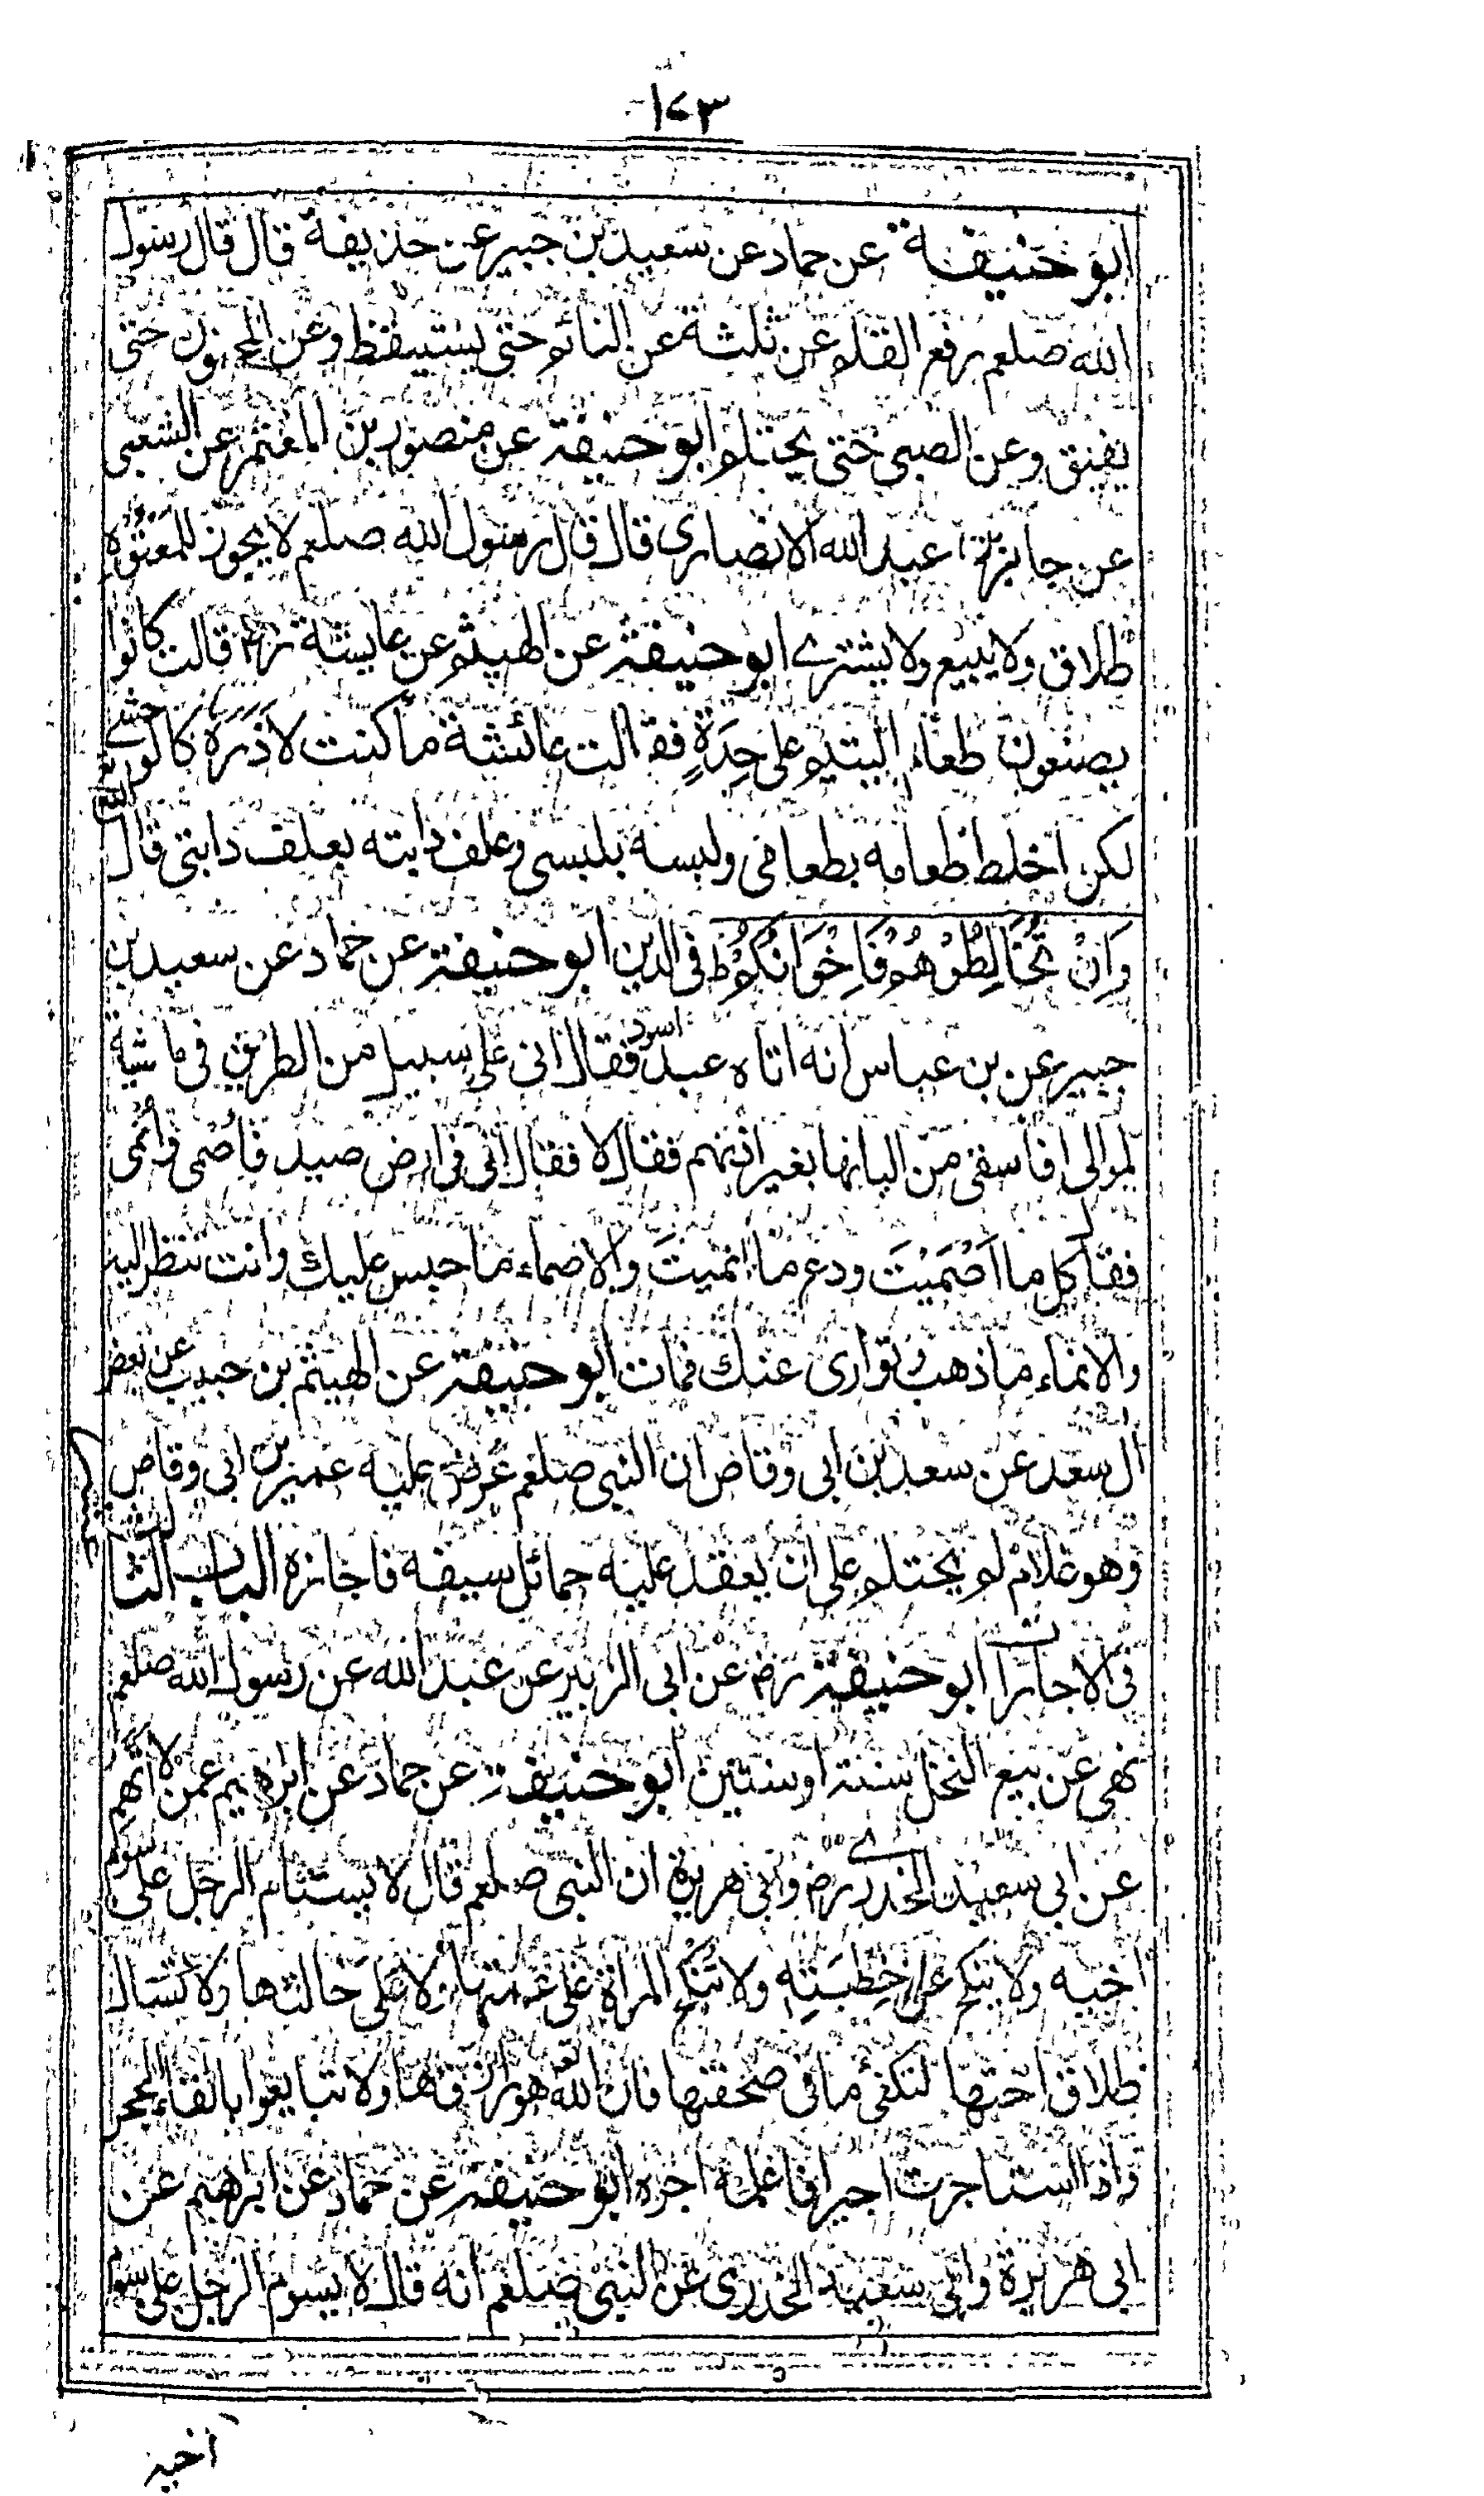 ١٤٣
ابو حنيفة عن حماد عن سعيد بن جبير عن حذيفة قال قال رسول
الله صلعم رفع القلم عن ثلثة عن النائم حتى يستيقظ وعن المجنون حتى
يفيق وعن الصبى حتى يحتلم ابو حنيفة عن منصور بن المعتمر عن الشعبى
عن جابر بن عبد الله الانصارى قال قال رسول الله صلعم لا يجوز للمعتوه
طلاق ولا يبيع ولا يشترے ابو حنيفة عن الهيثم عن عايشة رضى قالت كانوا
يصنعون طعام اليتيم على حِدَةٍ فقالت عائشة ما كنت لاذره كالوحشے
لكن اخلط طعامه بطعامى ولبسه بلبسى وعلف دابته بعلف دابتى قال الله تع
وَاِنْ تُخَالِطُوْهُمْ فَاِخْوَانُكُمْ ط فى الدين ابو حنيفة عن حماد عن سعيد بن
جبير عن بن عباس انه اتاه عبد اسود فقال انى على سبيل من الطريق فى ماشية
لموالى افاسقى من البانها بغير اذنهم فقال لا فقال انى فى ارض صيد فاُصمى واُنمى
فقال كل ما اَصْمَيْتَ ودع ما انميتَ والاصماء ما حبس عليك وانت تنظر اليه
والانماء ما ذهب وتوارى عنك فمات ابو حنيفة عن الهيثم بن حبيب عن بعض
ال سعد عن سعد بن ابى وقاص ان النبى صلعم عُرِضَ عليه عمير بن ابى وقاص
وهو غلام لم يحتلم على ان يعقد عليه حمائل سيفه فاجازه الباب الثالث
فى الاجارات ابو حنيفة رض عن ابى الزبير عن عبد الله عن رسول الله صلعم
نهى عن بيع النخل سنة او سنتين ابو حنيفة عن حماد عن ابرهيم عمن لا اتهم
عن ابى سعيد الخدرے رض وابى هريرة ان النبى صلعم قال لا يستام الرجل على سوم
اخيه ولا ينكح على خِطبَتِه ولا تُنْكَح المرأة على عمتها ولا على خالتها ولا تسأل
طلاق اختها لتكفئ ما فى صحفتها فان الله تع هو رازقها ولا تبايعوا بالقاء الحجر
واذا استاجرت اجيرا فاعلمه اجره ابو حنيفة عن حماد عن ابرهيم عن
ابى هريرة وابى سعيد الخدرى عن النبى صلعم انه قال لا يسوم الرجل على سوم
اخيه